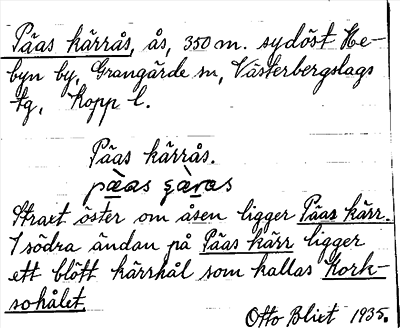 Päas kärrås, ås, 350 m. sydöst He-
byn by, Grangärde sn, Västerbergslags
tg, Kopp l.
Päas kärrås.
pä̀as ɕä̀ras
Straxt öster om åsen ligger Päas kärr.
I södra ändan på Päas kärr ligger
ett blött kärrhål som kallas Kork-
sohålet.
Otto Blixt 1935.